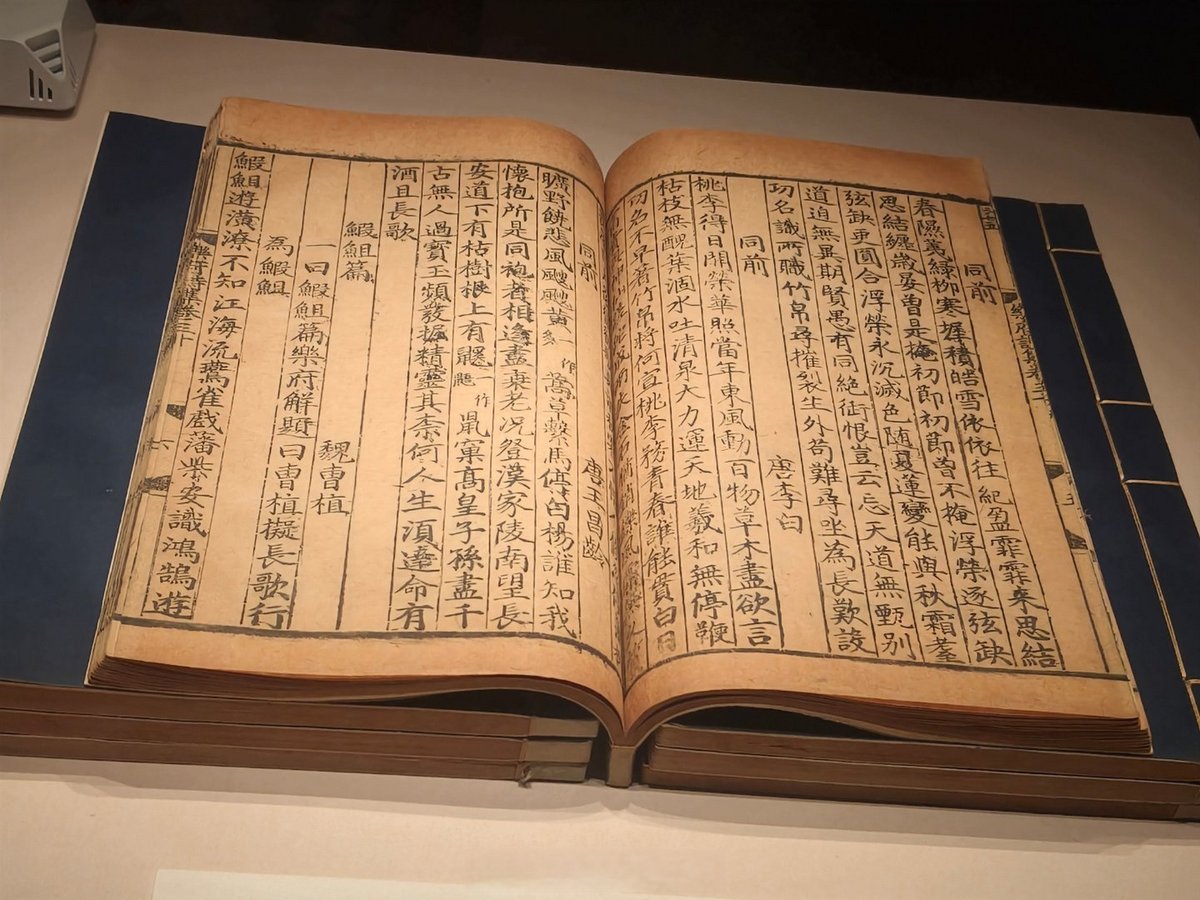 同前
春隰荑綠柳寒墀積皓雪依依往紀盈霏霏來思結
思結纏歲晏曾是掩初節初節曾不掩浮榮逐弦缺
弦缺更圓合浮榮永沉滅色隨夏蓮變態與秋霜耋
道迫無異期賢愚有同絕銜恨豈云忘天道無甄別
功名識所職竹帛尋摧裂生外苟難尋坐為長歎設
同前 唐李白
桃李得日開榮華照當年東風動百物草木盡欲言
枯枝無醜葉涸水吐清泉大力運天地羲和無停鞭
功名不早著竹帛將何宣桃李務青春誰能貰白日
同前 唐王昌齡
曠野饒悲風颼颼黃一作多蒿草繫馬停白楊誰知我
懷抱所是同袍者相逢盡衰老況登漢家陵南望長
安道下有枯樹根上有鼯一作鼠窠高皇子孫盡千
古無人過寶玉頻發掘精靈其柰何人生須達命有
酒且長歌
鰕䱇篇
魏曹植
一曰鰕䱇篇樂府解題曰曹植擬長歌行
爲鰕䱇
鰕䱇游潢潦不知江海流鷰雀戲藩柴安識鴻鵠遊